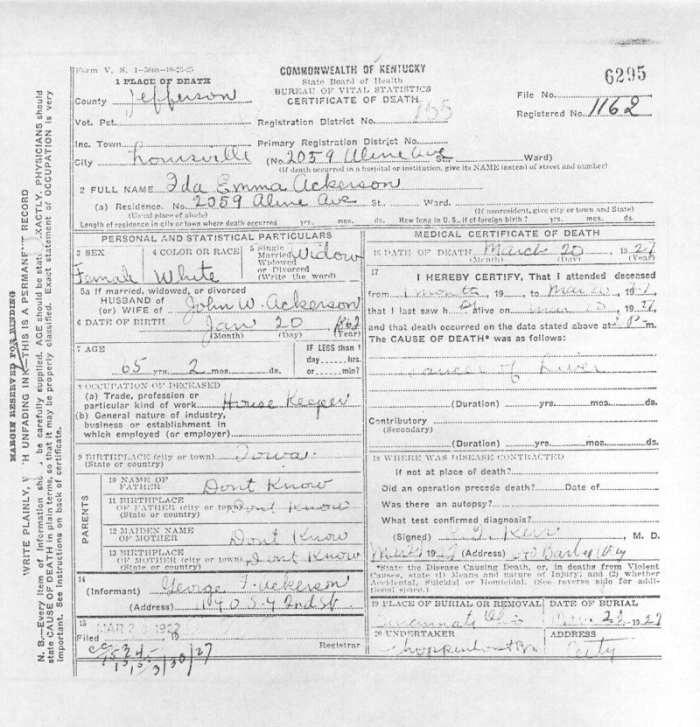 Form V. S. 1-50m-10-21-25
COMMONWEALTH OF KENTUCKY
State Board of Health
BUREAU OF VITAL STATISTICS
CERTIFICATE OF DEATH
6295
1 PLACE OF DEATH
County Jefferson
File No.
Vot. Pct.
Registration District No.
Registered No. 1162
Inc. Town
Primary Registration District No.
City Louisville (No. 2059 Aline Ave St. Ward)
(If death occurred in a hospital or institution, give its NAME instead of street and number)
2 FULL NAME Ida Emma Ackerson
(a) Residence. No. 2059 Aline Ave St. Ward.
(Usual place of abode) (If nonresident, give city or town and State)
Length of residence in city or town where death occurred yrs. mos. ds. How long in U. S., if of foreign birth? yrs. mos. ds.
PERSONAL AND STATISTICAL PARTICULARS
3 SEX
Female
4 COLOR OR RACE
White
5 Single
Married
Widowed
or Divorced
(Write the word)
Widow
5a If married, widowed, or divorced
HUSBAND of
(or) WIFE of John W. Ackerson
6 DATE OF BIRTH Jan 20 1862
(Month) (Day) (Year)
7 AGE
65 yrs. 2 mos. ds.
IF LESS than 1
day hrs.
or min?
8 OCCUPATION OF DECEASED
(a) Trade, profession or
particular kind of work House Keeper
(b) General nature of industry,
business or establishment in
which employed (or employer)
9 BIRTHPLACE (city or town) Iowa
(State or country)
PARENTS
10 NAME OF
FATHER Dont Know
11 BIRTHPLACE
OF FATHER (city or town) Dont Know
(State or country)
12 MAIDEN NAME
OF MOTHER Dont Know
13 BIRTHPLACE
OF MOTHER (city or town) Dont Know
(State or country)
14
(Informant) George F. Ackerson
(Address) 1405 S 42nd St.
15
Filed
Registrar
MEDICAL CERTIFICATE OF DEATH
16 DATE OF DEATH March 20, 1927
(Month) (Day) (Year)
17
I HEREBY CERTIFY, That I attended deceased
from 19 to Mar 20 1927
that I last saw h alive on 1927,
and that death occurred on the date stated above at m.
The CAUSE OF DEATH* was as follows:
Cancer of Liver
(Duration) yrs. mos. ds.
Contributory
(Secondary)
(Duration) yrs. mos. ds.
18 WHERE WAS DISEASE CONTRACTED
If not at place of death?
Did an operation precede death? Date of
Was there an autopsy?
What test confirmed diagnosis?
(Signed) Kerr, M. D.
19 (Address) City
*State the Disease Causing Death, or, in deaths from Violent
Causes, state (1) Means and nature of Injury; and (2) whether
Accidental, Suicidal or Homicidal. (See reverse side for addi-
tional space.)
19 PLACE OF BURIAL OR REMOVAL
Cincinnati Ohio
DATE OF BURIAL
1927
20 UNDERTAKER
ADDRESS
City
MARGIN RESERVED FOR BINDING
WRITE PLAINLY, WITH UNFADING INK—THIS IS A PERMANENT RECORD
N. B.—Every item of information should be carefully supplied. AGE should be stated EXACTLY. PHYSICIANS should
state CAUSE OF DEATH in plain terms, so that it may be properly classified. Exact statement of OCCUPATION is very
important. See instructions on back of certificate.